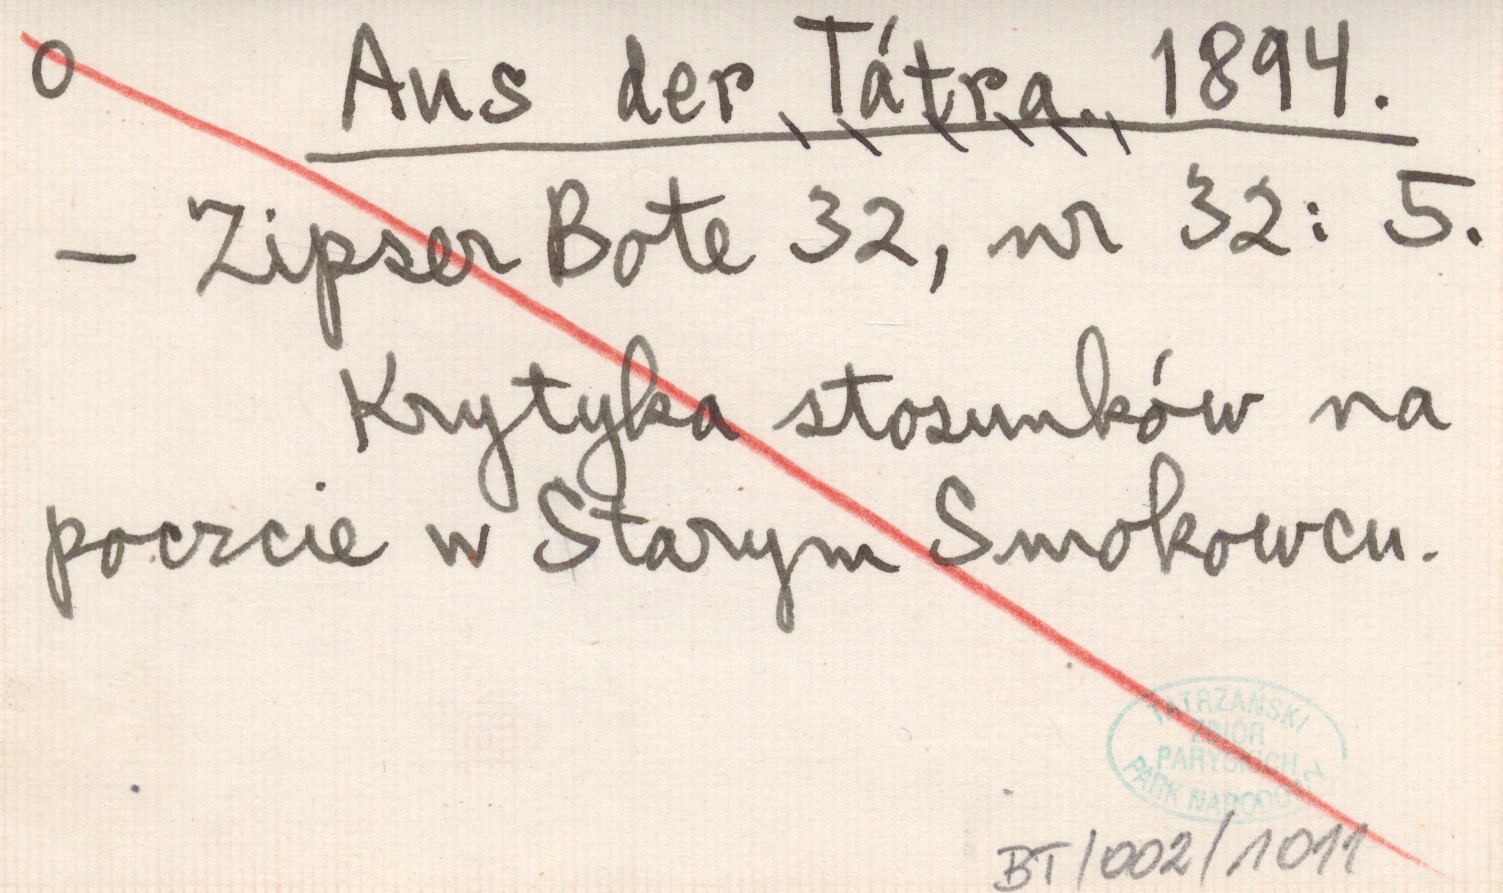 O Aus der Tátra. 1894.
— Zipser Bote 32, nr 32: 5.
Krytyka stosunków na
poczcie w Starym Smokowcu.
TATRZAŃSKI
ZBIÓR
PARYSKICH
PARK NARODOWY
BT/002/1011